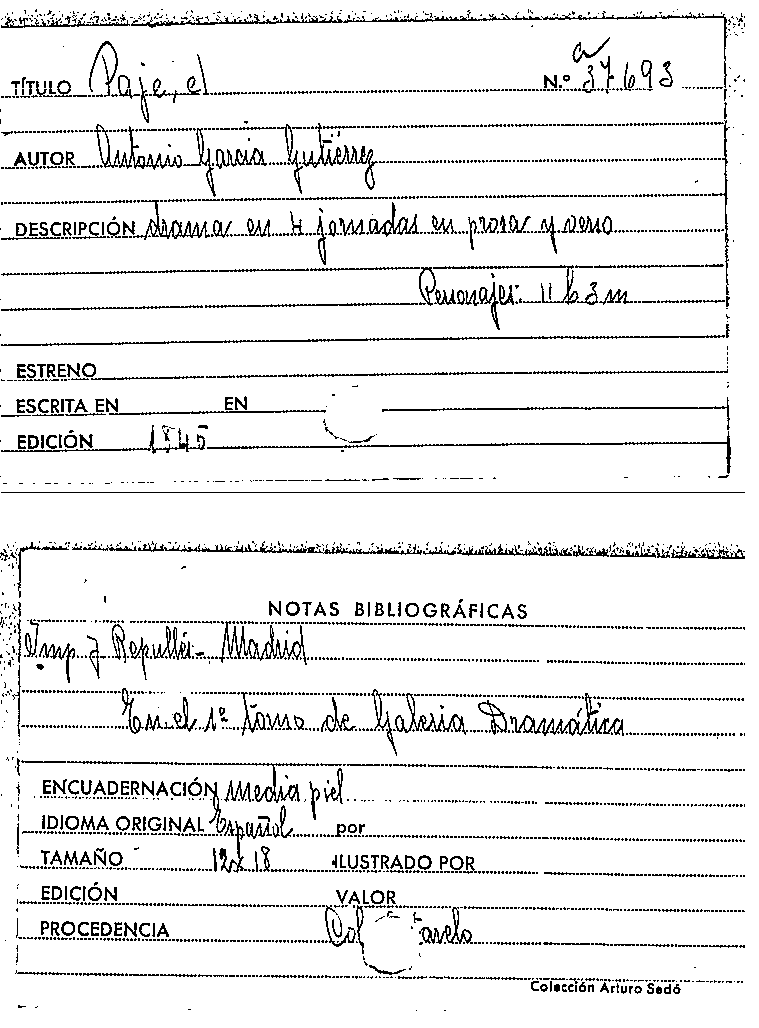 TÍTULO Paje, el N.º a 37693
AUTOR Antonio García Gutiérrez
DESCRIPCIÓN drama en 4 jornadas en prosa y verso
Personajes: 11 h 3 m
ESTRENO
ESCRITA EN EN
EDICIÓN 1845
NOTAS BIBLIOGRÁFICAS
Imp J Repullés - Madrid
En el 1º tomo de Galeria Dramática
ENCUADERNACIÓN media piel
IDIOMA ORIGINAL Español por
TAMAÑO 12x18 ILUSTRADO POR
EDICIÓN VALOR
PROCEDENCIA Col
Colección Arturo Sedó